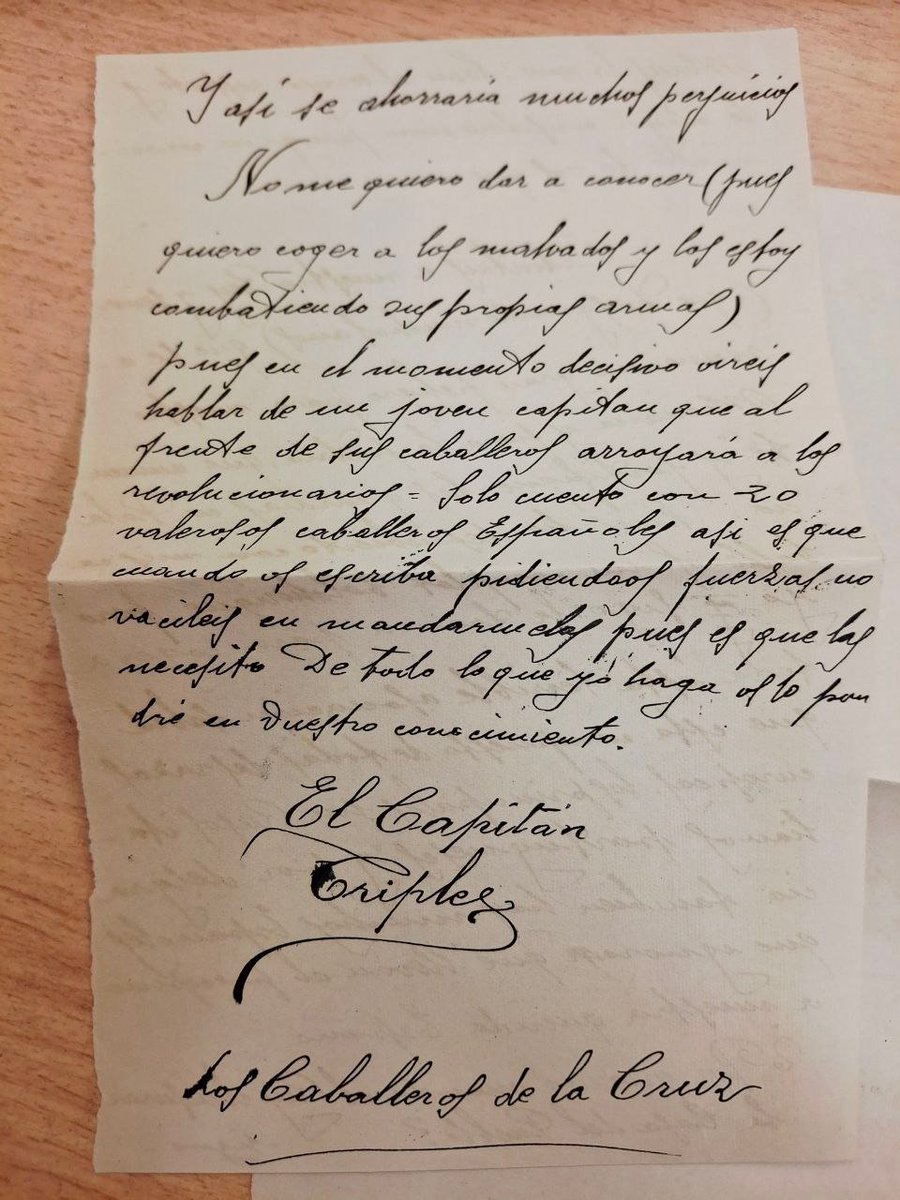 Y asi se ahorraria muchos perjuicios
No me quiero dar a conocer (pues
quiero coger a los malvados y los estoy
combatiendo sus propias armas)
pues en el momento decisivo oireis
hablar de un joven capitan que al
frente de sus caballeros arroyará a los
revolucionarios = Solo cuento con 20
valerosos caballeros Españoles asi es que
cuando os escriba pidiendoos fuerzas no
vacileis en mandarmelas pues es que las
necesito De todo lo que yo haga os lo pon
dré en vuestro conocimiento.
El Capitán
Triples
Los Caballeros de la Cruz